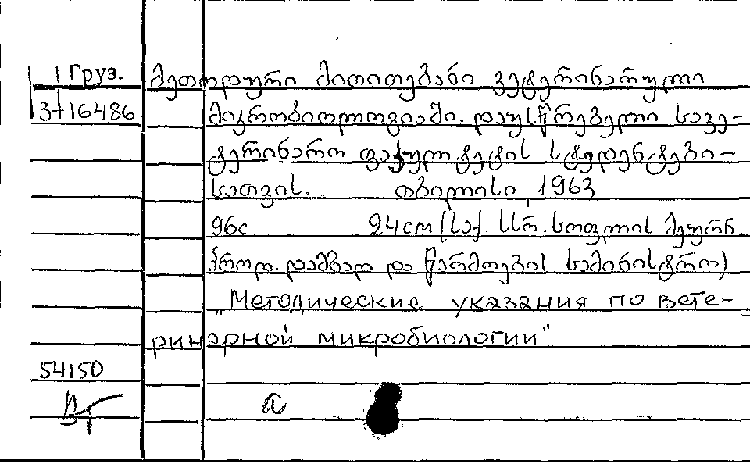 1 Груз. მეთოდური მითითებანი ვეტერინარული
3-16486 მიკრობიოლოგიაში. დაუსწრებელი სავე-
ტერინარო ფაკულტეტის სტუდენტები-
სათვის. თბილისი, 1963
96с 24см (საქ. სსრ. სოფლის მეურნ
პროდ. დამზად და წარმოების სამინისტრო)
„Методические указания по вете-
ринарной микробиологии"
54150
а